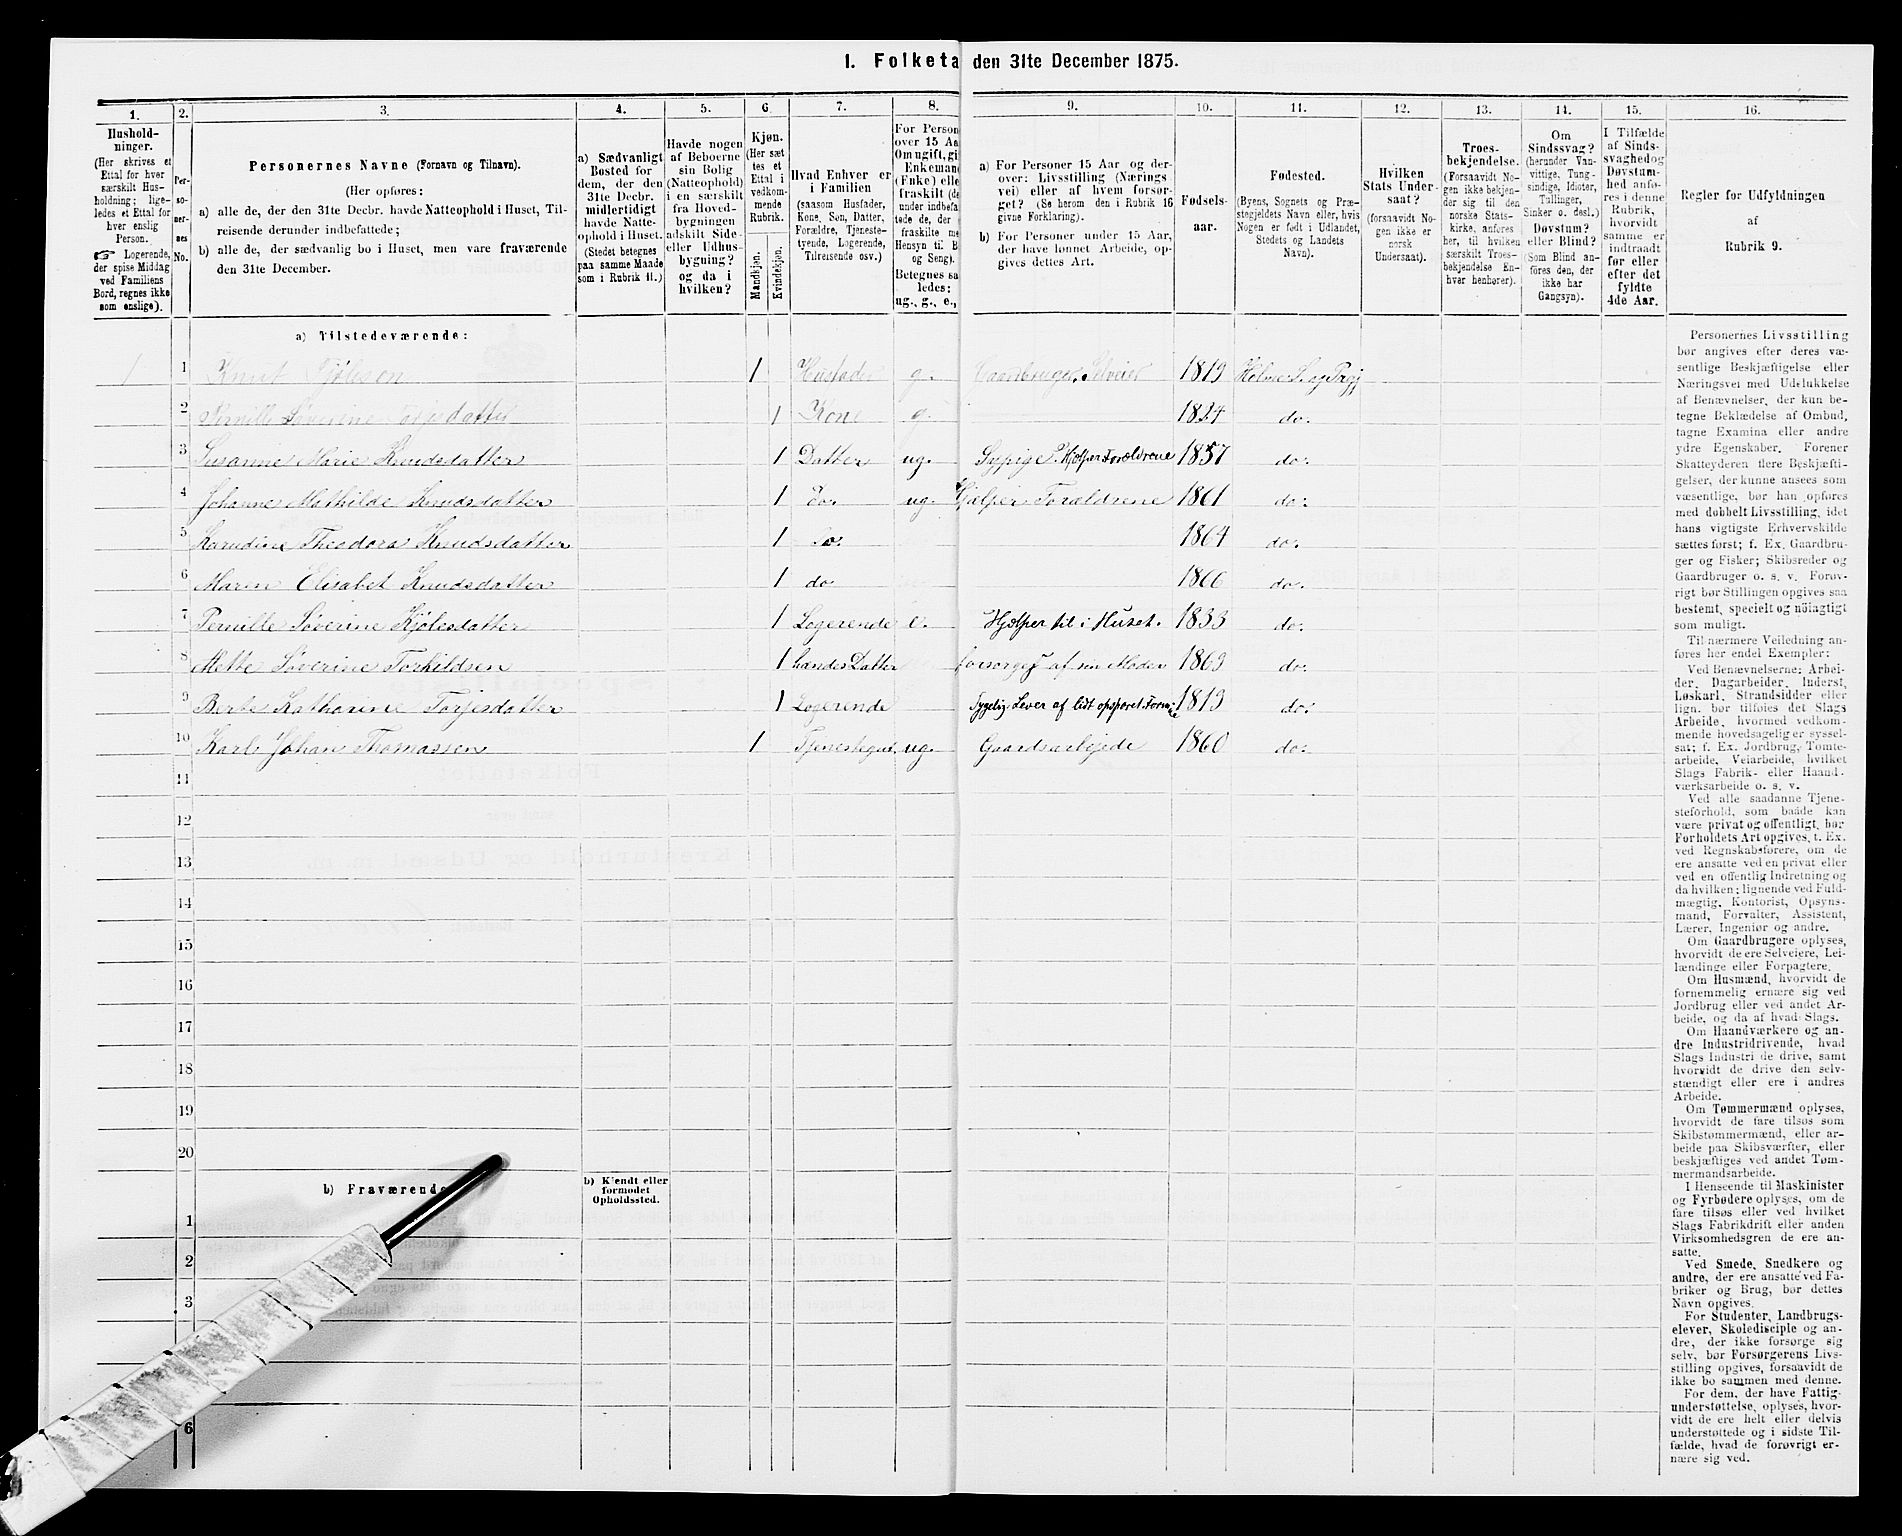 I. Folketa
den 31te December 1875.
1.
Hushold-
ninger.
(Her skrives et
Ettal for hver
særskilt Hus-
holdning; lige-
ledes et Ettal for
hver enslig
Person.
☞ Logerende,
der spise Middag
ved Familiens
Bord, regnes ikke
som enslige).
2.
Per-
so-
ner-
nes
No.
3.
Personernes Navne (Fornavn og Tilnavn).
(Her opføres:
a) alle de, der den 31te Decbr. havde Natteophold i Huset, Til-
reisende derunder indbefattede;
b) alle de, der sædvanlig bo i Huset, men vare fraværende
den 31te December.
4.
a) Sædvanligt
Bosted for
dem, der den
31te Decbr.
midlertidigt
havde Natte-
ophold i Huset.
(Stedet betegnes
paa samme Maade
som i Rubrik 11.)
5.
Havde nogen
af Beboerne
sin Bolig
(Natteophold)
i en særskilt
fra Hoved-
bygningen
adskilt Side-
eller Udhus-
bygning?
og da i
hvilken?
6.
Kjøn.
(Her sæt
tes et
Ettal i
vedkom-
mende
Rubrik.
Mandkjøn.
Kvindekjøn.
7.
Hvad Enhver er
i Familien
(saasom Husfader,
Kone, Søn, Datter,
Forældre, Tjeneste-
tyende, Logerende,
Tilreisende osv.)
8.
For Person
over 15 Aa
Om ugift, gi
Enkeman
(Enke) elle
fraskilt (de
under indbefa
tede de, der
fraskilte me
Hensyn til B
og Seng).
Betegnes sa
ledes:
ug., g., e.,
9.
a) For Personer 15 Aar og der-
over: Livsstilling (Nærings
vei) eller af hvem forsør-
get? (Se herom den i Rubrik 16
givne Forklaring).
b) For Personer under 15 Aar,
der have lønnet Arbeide, op-
gives dettes Art.
10.
Fødsels-
aar.
11.
Fødested.
(Byens, Sognets og Præ-
stegjeldets Navn eller, hvis
Nogen er født i Udlandet,
Stedets og Landets
Navn).
12.
Hvilken
Stats Under-
saat?
(forsaavidt No-
gen ikke er
norsk
Undersaat).
13.
Troes-
bekjendelse.
(Forsaavidt No-
gen ikke bekjen-
der sig til den
norske Stats-
kirke, anføres
her, til hvilken
særskilt Troes-
bekjendelse En-
hver henhører).
14.
Om
Sindssvag?
(herunder Van-
vittige, Tung-
sindige, Idioter,
Tullinger,
Sinker o. desl.)
Døvstum?
eller Blind?
(Som Blind an-
føres den, der
ikke har
Gangsyn).
15.
I Tilfælde
af Sinds-
svaghed og
Døvstum-
hed anfø-
res i denne
Rubrik,
hvorvidt
samme er
indtraadt
før eller
efter det
fyldte
4de Aar.
16.
Regler for Udfyldningen
af
Rubrik 9.
a) Tilstedeværende:
1 1 Knut 1 Husfader g. Gaardbruger, Selveier 1819 Holme S. og Prgj
2 Pernille Søverine Torjesdatter 1 Kone g. 1824 do.
3 Susanne Marie Knudsdatter 1 Datter ug. Sypige. Hjelper Forældrene 1857 do.
4 Johanne Mathilde Knudsdatter 1 Do. ug. Hjelper Forældrene 1861 do.
5 Theodora Knudsdatter 1 Do. 1864 do.
6 Maren Elisabet Knudsdatter 1 do 1866 do.
7 Pernille Søverine Kjølesdatter 1 Logerende e. Hjælper til i Huset. 1833 do.
8 Mette Søverine Torkildsen 1 hendes Datter forsørges af sin Moder 1869 do.
9 Berte Katharine Torjesdatter 1 Logerende Sygelig Lever af lidt opsparet 1819 do.
10 Karl Johan Thomassen 1 ug. Gaardsarbejde 1860 do.
11
12
13
14
15
16
17
18
19
20
b) Fraværende
b) Kjendt eller
formodet
Opholdssted.
1
2
3
6
Personernes Livsstilling
bør angives efter deres væ-
sentlige Beskjæftigelse eller
Næringsvei med Udelukkelse
af Benævnelser, der kun be-
tegne Beklædelse af Ombud,
tagne Examina eller andre
ydre Egenskaber. Forener
Skatteyderen flere Beskjæfti-
gelser, der kunne ansees som
væsentlige, bør han opføres
med dobbelt Livsstilling, idet
hans vigtigste Erhvervskilde
sættes først; f. Ex. Gaardbru-
ger og Fisker; Skibsreder og
Gaardbruger o. s. v. Forøv-
rigt bør Stillingen opgives saa
bestemt, specielt og nøiagtigt
som muligt.
Til nærmere Veiledning an-
føres her endel Exempler:
Ved Benævnelserne: Arbei-
der, Dagarbeider, Inderst,
Løskarl, Strandsidder eller
lign. bør tilføies det Slags
Arbeide, hvormed vedkom-
mende hovedsagelig er syssel-
sat; f. Ex. Jordbrug, Tomte-
arbeide, Veiarbeide, hvilket
Slags Fabrik- eller Haand-
værksarbeide o. s. v.
Ved alle saadanne Tjene-
steforhold, som baade kan
være privat og offentligt, bør
Forholdets Art opgives, t. Ex.
ved Regnskabsførere, om de
ere ansatte ved en privat eller
ved en offentlig Indretning og
da hvilken; lignende ved Fuld-
mægtig, Kontorist, Opsyns-
mand, Forvalter, Assistent,
Lærer, Ingeniør og andre.
Om Gaardbrugere oplyses,
hvorvidt de ere Selveiere, Lei-
lændinge eller Forpagtere.
Om Husmænd, hvorvidt de
fornemmelig ernære sig ved
Jordbrug eller ved andet Ar-
beide, og da af hvad Slags.
Om Haandværkere og an-
dre Industridrivende, hvad
Slags Industri de drive, samt
hvorvidt de drive den selv-
stændigt eller ere i andres
Arbeide.
Om Tømmermænd oplyses,
hvorvidt de fare tilsøs som
Skibstømmermænd, eller ar-
beide paa Skibsværfter, eller
beskjæftiges ved andet Tøm-
mermandsarbeide.
I Henseende til Maskinister
og Fyrbødere oplyses, om de
fare tilsøs eller ved hvilket
Slags Fabrikdrift eller anden
Virksomhedsgren de ere an-
satte.
Ved Smede, Snedkere og
andre, der ere ansatte ved Fa-
briker og Brug, bør dettes
Navn opgives.
For Studenter, Landbrugs-
elever, Skoledisciple og an-
dre, der ikke forsørge sig
selv, bør Forsørgerens Livs-
stilling opgives, forsaavidt de
ikke bo sammen med denne.
For dem, der have Fattig-
understøttelse, oplyses, hvor-
vidt de ere helt eller delvis
understøttede og i sidste Til-
fælde, hvad de forøvrigt er-
nære sig ved.